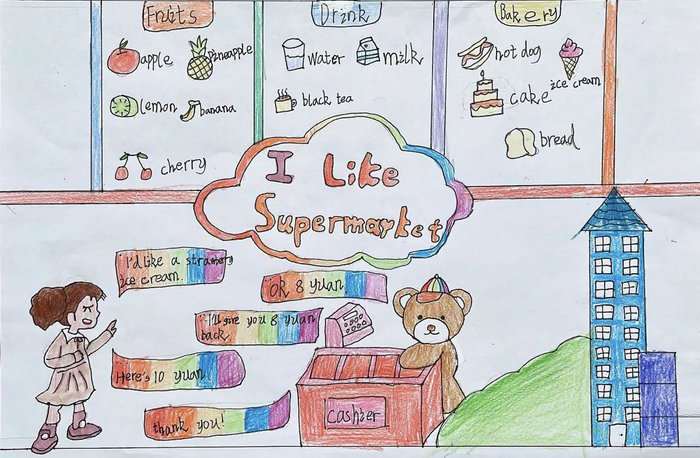 Fruits
apple
pineapple
lemon
banana
cherry
Drink
water
milk
black tea
Bakery
hot dog
ice cream
cake
bread
I Like
Supermarket
I'd like a strawery
ice cream.
OK 8 yuan.
I'll give you 8 yuan
back
Here's 10 yuan.
thank you!
cashier